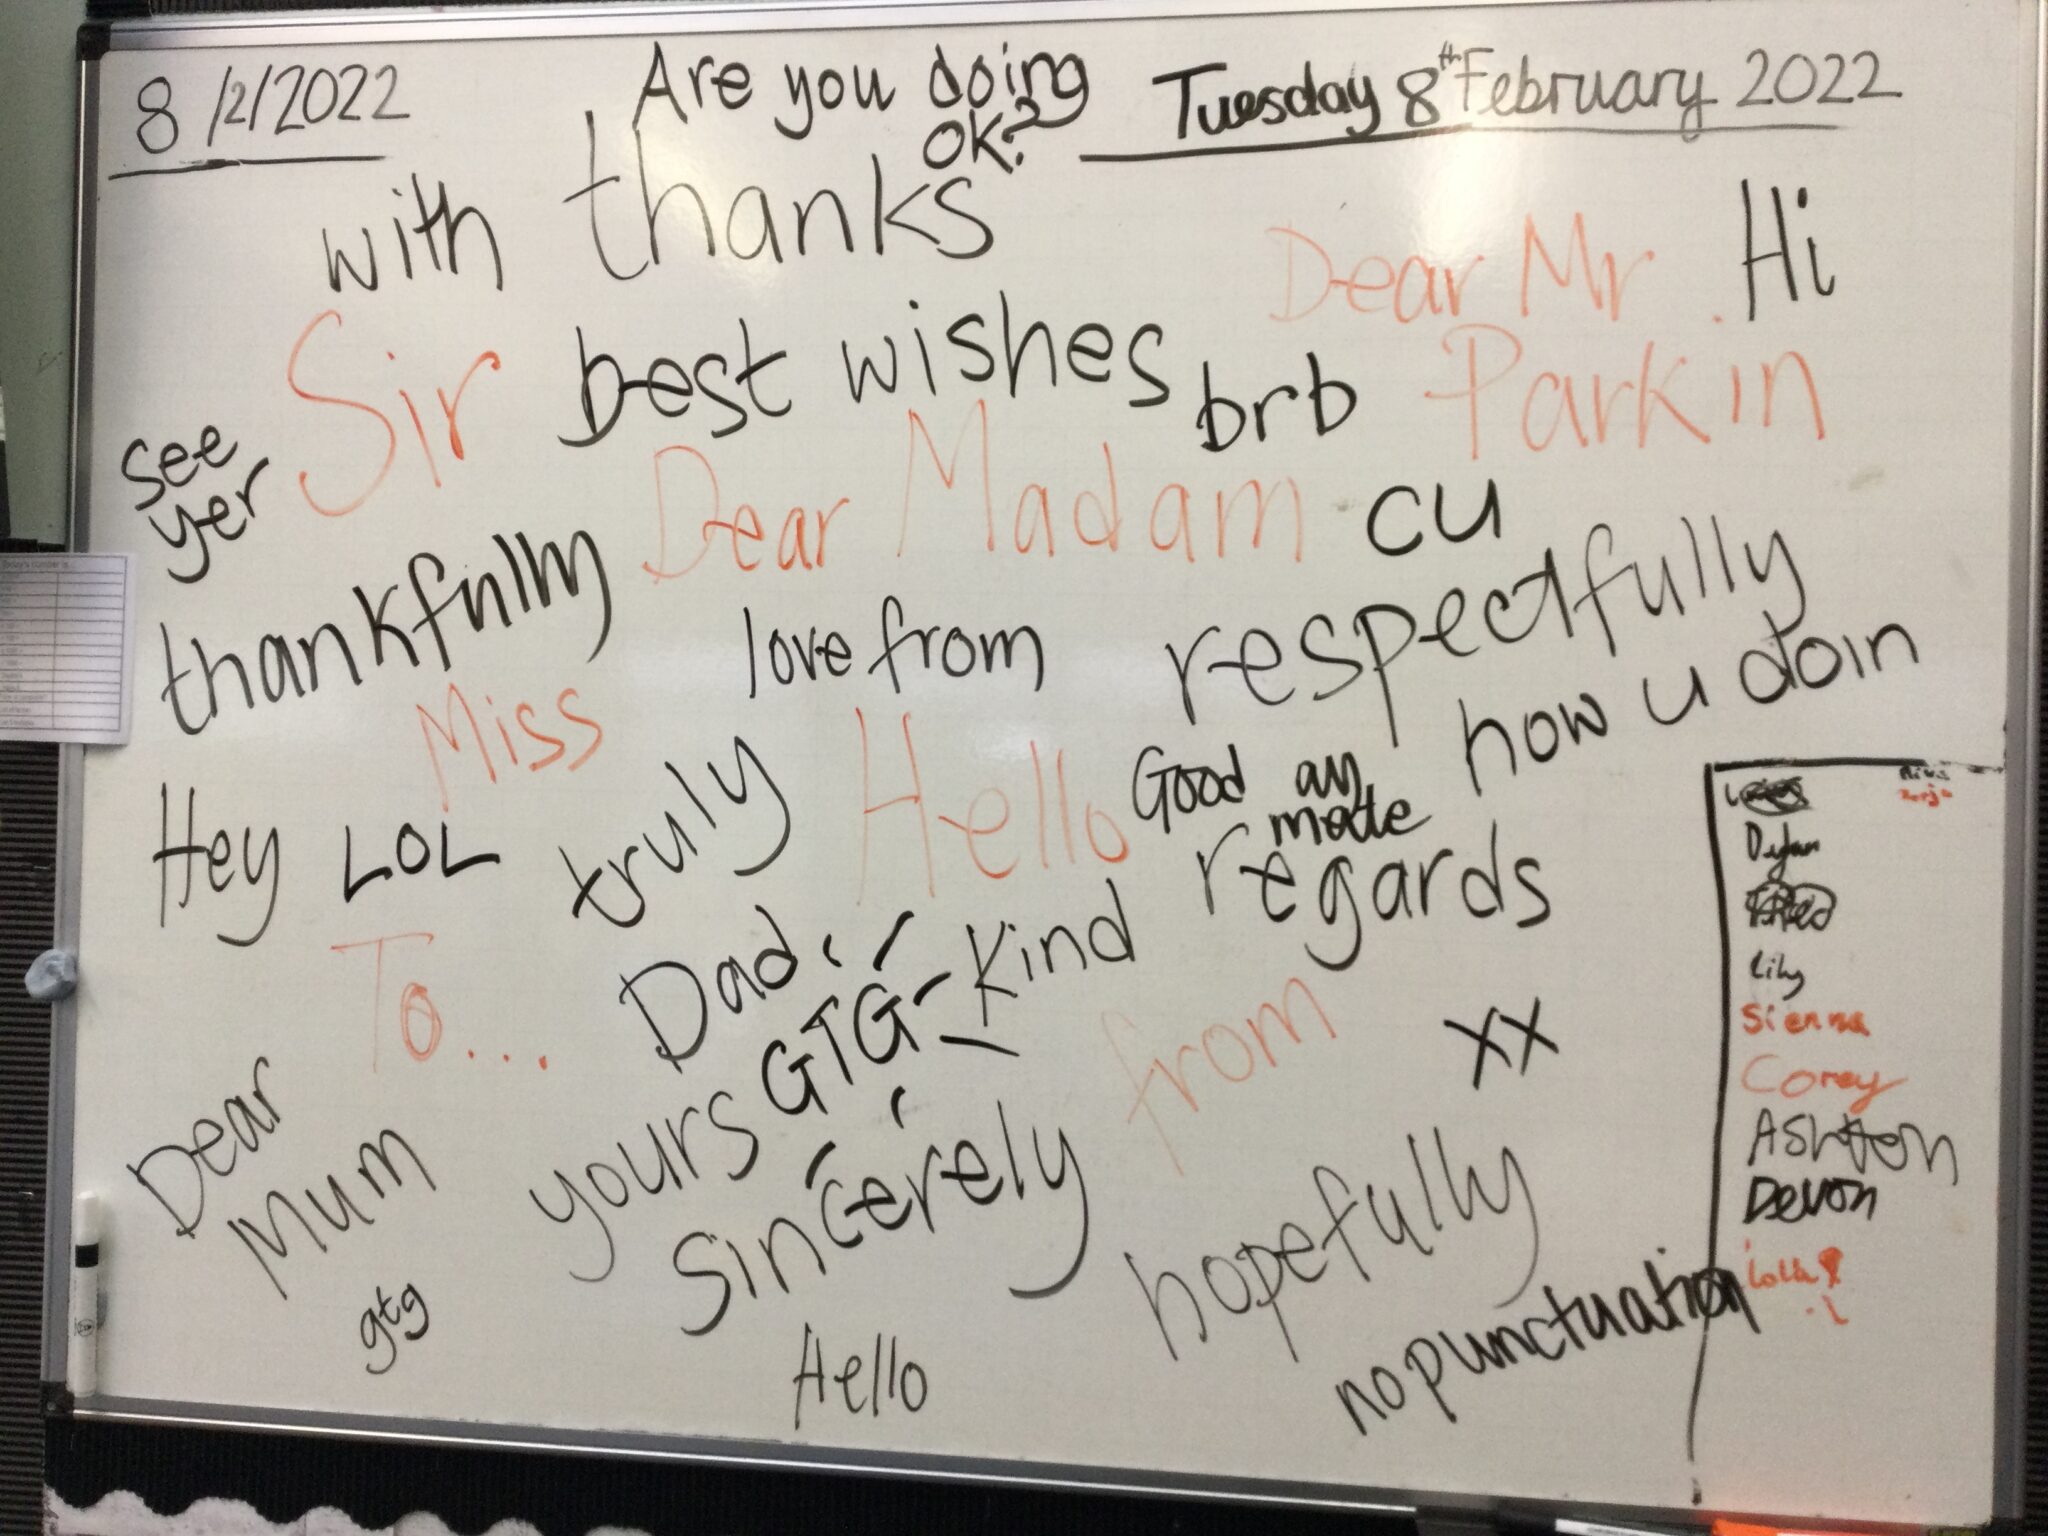 8/2/2022
Are you doing
OK?
Tuesday 8th February 2022
with thanks
Dear Mr.
Parkin
Hi
Sir
best wishes
brb
see
yer
Dear Madam
cu
thankfully
love from
respectfully
how u doin
Miss
Hey
LOL
truly
Hello
Good
mate
Kind regards
To...
Dad
GTG
from
xx
Dear
Mum
yours
Sincerely
hopefully
gtg
Hello
no punctuation
Dylan
Lily
Sienna
Corey
Ashton
Devon